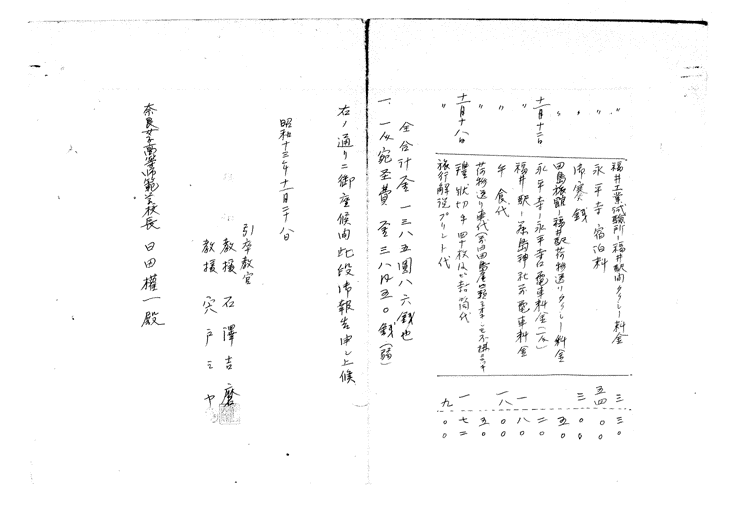 〃 福井工業試験所ー福井駅間タクシー料金 三 三〇
〃 永平寺宿泊料 五四 〇〇
〃 御寒銭 三 〇〇
〃 田島旅館ー福井駅荷物送リタクシー料金 五〇
十一月十二日 永平寺ー永平寺口電車料金(一人) 二〇
〃 福井駅ー 島神社前電車料金 一 八〇
〃 午食代 一八 〇〇
〃 荷物送リ車代 五〇
十一月十八日 禮状切手四十枚はがき封筒代 一 七二
〃 旅行解説プリント代 九 〇〇
全合計金 一三八五圓八六銭也
一、一人宛至費 金三八円五〇銭(弱)
右ノ通リニ御座候間此段御報告申し上候
昭和十三年十一月二十八日
引率教官
教授 石澤吉磨
教授 宍戸ミヤ
奈良女子高等師範学校長 日田權一殿